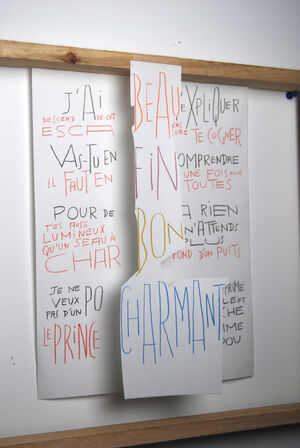 J'AI
DESCEND DE CET
ESCA
VAS-TU EN
IL FAUT EN
POUR DE
T'ES AUSSI
LUMINEUX
QU'UN SEAU À
CHAR
JE NE
VEUX
PAS D'UN PO
LE PRINCE
BEAU
FIN
BON
CHARMANT
EXPLIQUER
TE COGNER
OMPRENDRE
UNE FOIS POUR
TOUTES
A RIEN
N'ATTENDS
PLUS
OND D'UN PUITS
PRIME
LE ET
CHE
IME
OU